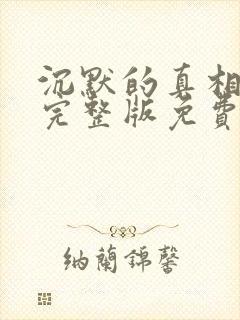 沉默的真相
完整版免費
纳蘭錦馨